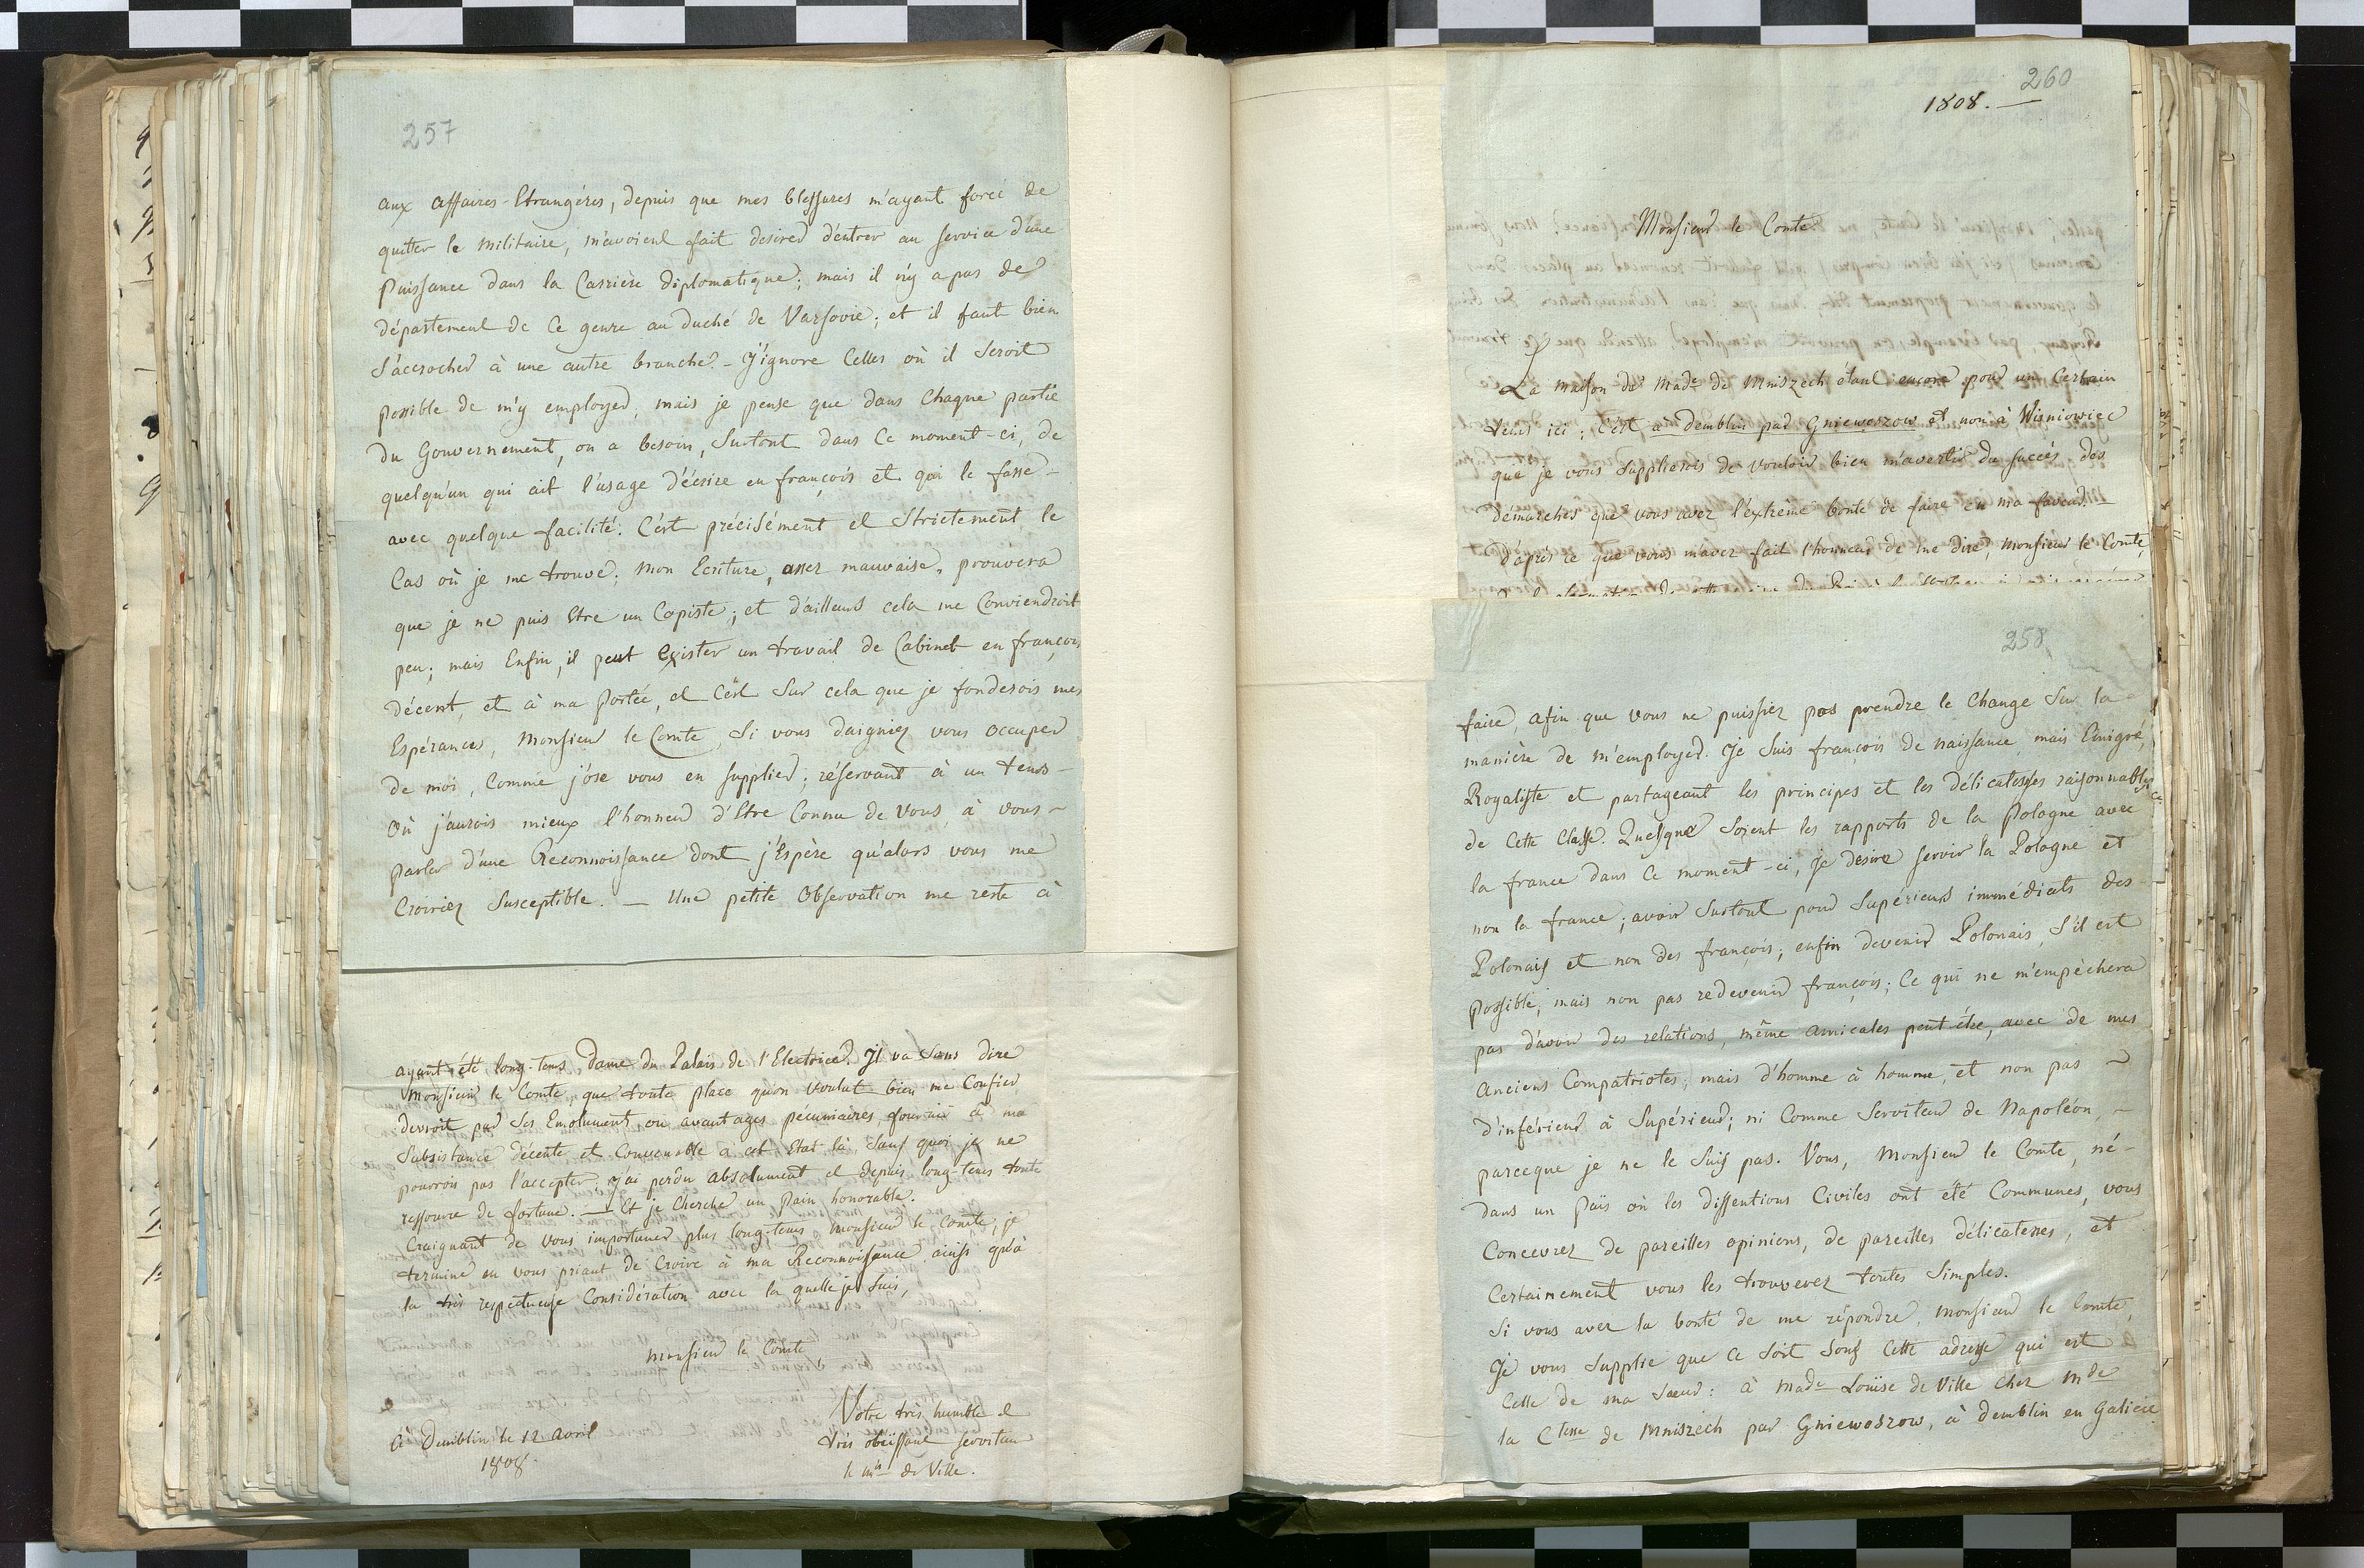 257
aux affaires-Etrangéres, depuis que mes blessures m'ayant forcé de
quitter le militaire, m'avoient fait desirer d'entrer au service d'une
Puissance dans la Carrière diplomatique; mais il n'y a pas de
département de ce genre au duché de Varsovie; et il faut bien
s'accrocher à une autre branche. - J'ignore Celles où il Seroit
possible de m'y employer, mais je pense que dans Chaque partie
du Gouvernement, on a besoin, Surtout dans Ce moment-ci, de
quelqu'un qui ait l'usage d'écrire en françois et qui le fasse-
avec quelque facilité. C'est précisément et Strictement le
Cas où je me trouve; mon Ecriture, assez mauvaise, prouvera
que je ne puis Etre un Copiste; et d'ailleurs cela me Conviendroit
peu; mais Enfin, il peut Exister un travail de Cabinet en françois
décent, et à ma portée, et C'est Sur cela que je fonderois mes
Espérances, Monsieur le Comte, Si vous daigniez vous occuper
de moi, Comme j'ose vous en supplier; réservant à un tems-
Où j'aurois mieux l'honneur d'Etre Connu de vous, à vous ~
parler d'une Reconnoissance dont j'Espère qu'alors vous me
Croiriez Susceptible. — Une petite Observation me reste à
ayant été long-tems Dame du Palais de l'Electrice. Il va Sans dire
Monsieur le Comte, que toute place qu'on voulut bien me Confier
devroit par Ses Emolumens, ou avantages pécuniaires, fournir à ma
Subsistance décente et Convenable à cet Etat là, Sauf quoi je ne
pourrois pas l'accepter, j'ai perdu absolument et depuis long-tems toute
ressource de fortune. — Et je Cherche un Pain honorable.
Craignant de vous importuner plus long-tems Monsieur le Comte, je
termine en vous priant de Croire à ma Reconnoissance, ainsi qu'à
la très respectueuse Considération avec la quelle je Suis,
Monsieur le Comte
Votre très humble et
très obéissant serviteur
le Mis de Ville.
à Demblin le 12 Avril
1808.
260
1808. —
Monsieur le Comte
La maison de Made de Mniszech étant encore pour un Certain
tems ici; C'est à demblin par Gniewoszow et non à Wisniowiec
que je vous Supplierois de vouloir bien m'avertir du succès des
démarches que vous avez l'extrême bonté de faire en ma faveur. —
D'après ce que vous m'avez fait l'honneur de me dire, Monsieur le Comte,
258
faire, afin que vous ne puissiez pas prendre le Change Sur la
manière de m'employer. Je Suis françois de naissance, mais Emigré,
Royaliste et partageant les principes et les délicatesses raisonnables
de Cette Classe. Quelque Soient les rapports de la Pologne avec
la france dans Ce moment-ci, je desire servir la Pologne et
non la france; avoir Surtout pour Supérieurs immédiats des
Polonais et non des françois; enfin devenir Polonais, S'il est
possible, mais non pas redevenir françois; Ce qui ne m'empêchera
pas d'avoir des relations, même amicales peut être, avec de mes
anciens Compatriotes; mais d'homme à homme, et non pas ~
d'inférieur à Supérieur; ni Comme Serviteur de Napoléon, ~
parceque je ne le Suis pas. Vous, Monsieur le Comte, né-
dans un païs où les dissentions Civiles ont été Communes, vous
Concevrez de pareilles opinions, de pareilles délicatesses, et
Certainement vous les trouverez toutes Simples.
Si vous avez la bonté de me répondre, Monsieur le Comte,
Je vous Supplie que Ce Soit Sous Cette adresse qui est
Celle de ma Sœur: à Made Louise de Ville Chez Mde
la Ctesse de Mniszech par Gniewoszow, à demblin en Galicie